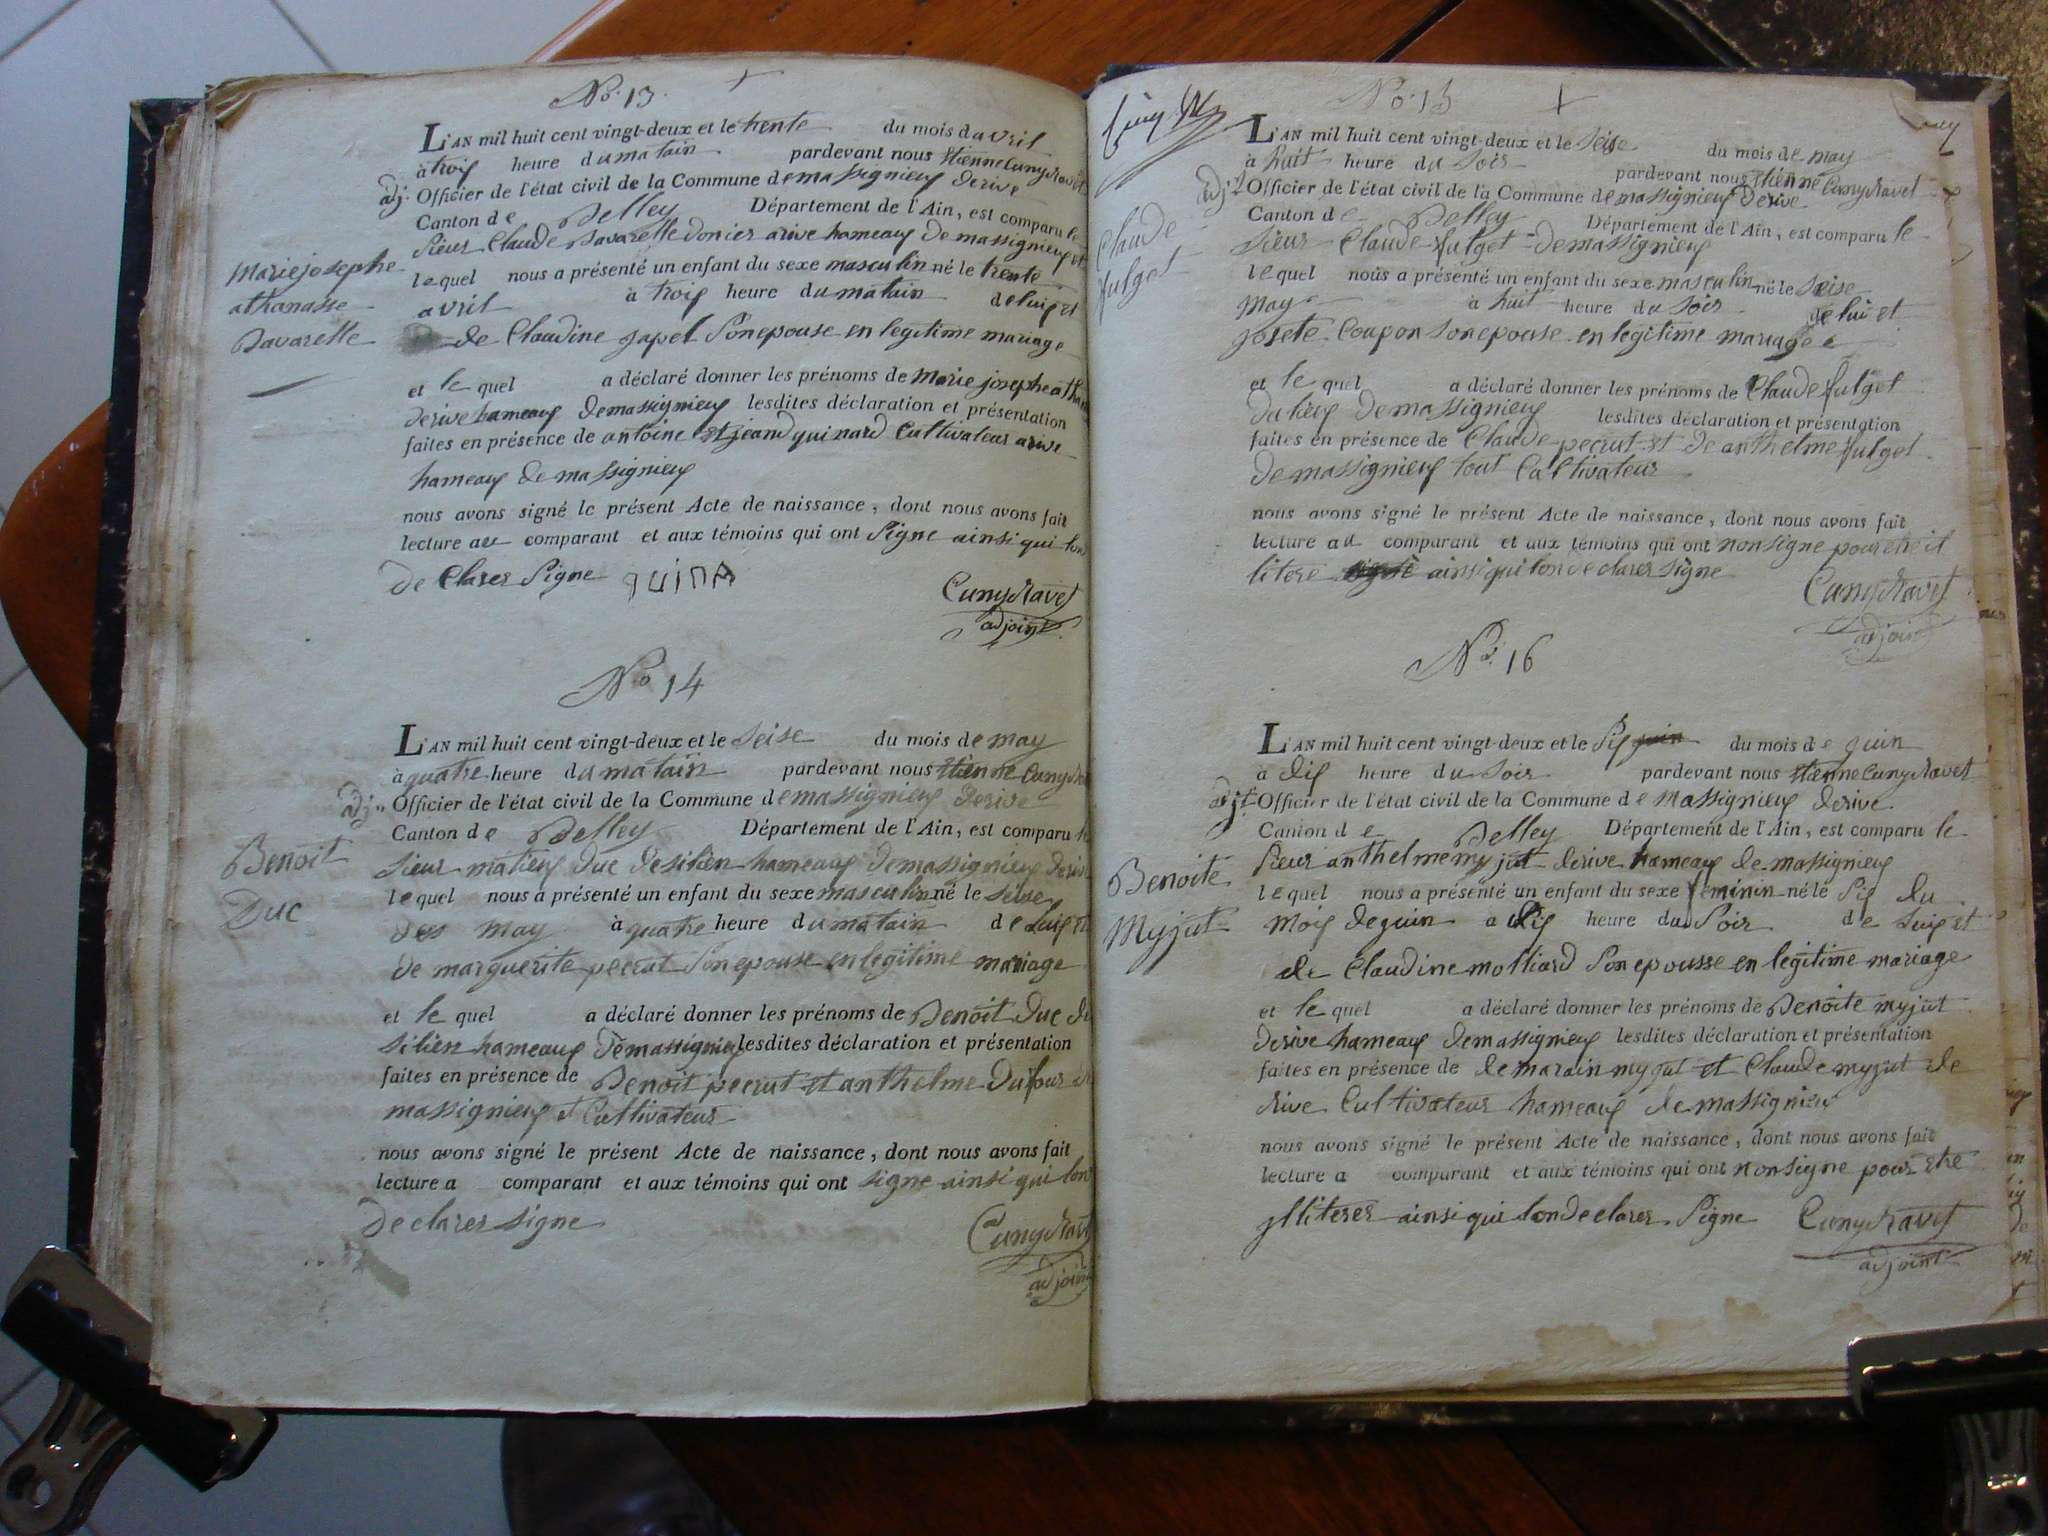 No. 13.
L'AN mil huit cent vingt-deux et le trente du mois d avril
à trois heure du matain pardevant nous Etienne Cuny Ravet
adj. Officier de l'état civil de la Commune de massignieux derive
Canton de Belley Département de l'Ain, est comparu le
sieur Claude Bavarelle donier arive hameaux de massignieux et
lequel nous a présenté un enfant du sexe masculin né le trente
avril à trois heure du matain de luis et
de Claudine japel sonepouse en legitime mariage
et le quel a déclaré donner les prénoms de marie josephe atha
derive hameaux demassignieux lesdites déclaration et présentation
faites en présence de antoine et jeand quinard Cultivateur arive
hameaux de massignieux
nous avons signé le présent Acte de naissance, dont nous avons fait
lecture au comparant et aux témoins qui ont signe ainsi qui lon
de Clarer signe QUINA
Cuny Ravet
adjoint
Marie josephe
athanasse
Bavarelle
No 14
L'AN mil huit cent vingt-deux et le seise du mois de may
à quatre heure du matain pardevant nous Etienne Cuny
adj. Officier de l'état civil de la Commune de massignieux derive
Canton de Belley Département de l'Ain, est comparu le
sieur matieux duc desilien hameaux demassignieux derive
lequel nous a présenté un enfant du sexe masculin né le seise
des may à quatre heure du matain de luis et
de marguerite pecrut sonepouse en legitime mariage
et le quel a déclaré donner les prénoms de Benoit duc de
silien hameaux demassignieux lesdites déclaration et présentation
faites en présence de Benoit pecrut et anthelme dufour de
massignieux Cultivateur
nous avons signé le présent Acte de naissance, dont nous avons fait
lecture a comparant et aux témoins qui ont signe ainsi qui lon
declarer signe
Cuny Ravet
adjoint
Benoit
Duc
No. 15
L'AN mil huit cent vingt-deux et le seise du mois de may
à huit heure du soir pardevant nous Etienne Cuny Ravet
adjt Officier de l'état civil de la Commune de massignieux derive
Canton de Belley Département de l'Ain, est comparu le
sieur Claude fulget demassignieux
lequel nous a présenté un enfant du sexe masculin né le seise
may à huit heure du soir de lui et
josete Coupon sonepouse en legitime mariage
et le quel a déclaré donner les prénoms de Claude fulget
du lieux demassignieux lesdites déclaration et présentation
faites en présence de Claude pecrut et de anthelme fulget
demassignieux tout Cultivateur
nous avons signé le présent Acte de naissance, dont nous avons fait
lecture au comparant et aux témoins qui ont non signe pour etre il
litere ainsi qui lon declarer signe
Cuny Ravet
adjoint
Claude
fulget
No. 16
L'AN mil huit cent vingt-deux et le sis juin du mois de juin
à dis heure du soir pardevant nous Etienne Cuny Ravet
adjt Officier de l'état civil de la Commune de massignieux derive
Canton de Belley Département de l'Ain, est comparu le
sieur anthelme myjut derive hameaux de massignieux
lequel nous a présenté un enfant du sexe feminin né le sis du
mois de juin a dis heure du soir de luis et
de Claudine molliard sonepousse en legitime mariage
et le quel a déclaré donner les prénoms de Benoite myjut
derive hameaux demassignieux lesdites déclaration et présentation
faites en présence de de marain myjut et Claude myjut de
rive Cultivateur hameaux de massignieux
nous avons signé le présent Acte de naissance, dont nous avons fait
lecture a comparant et aux témoins qui ont non signe pour etre
jlliterer ainsi qui londeclarer signe Cuny Ravet
adjoint
Benoite
Myjut